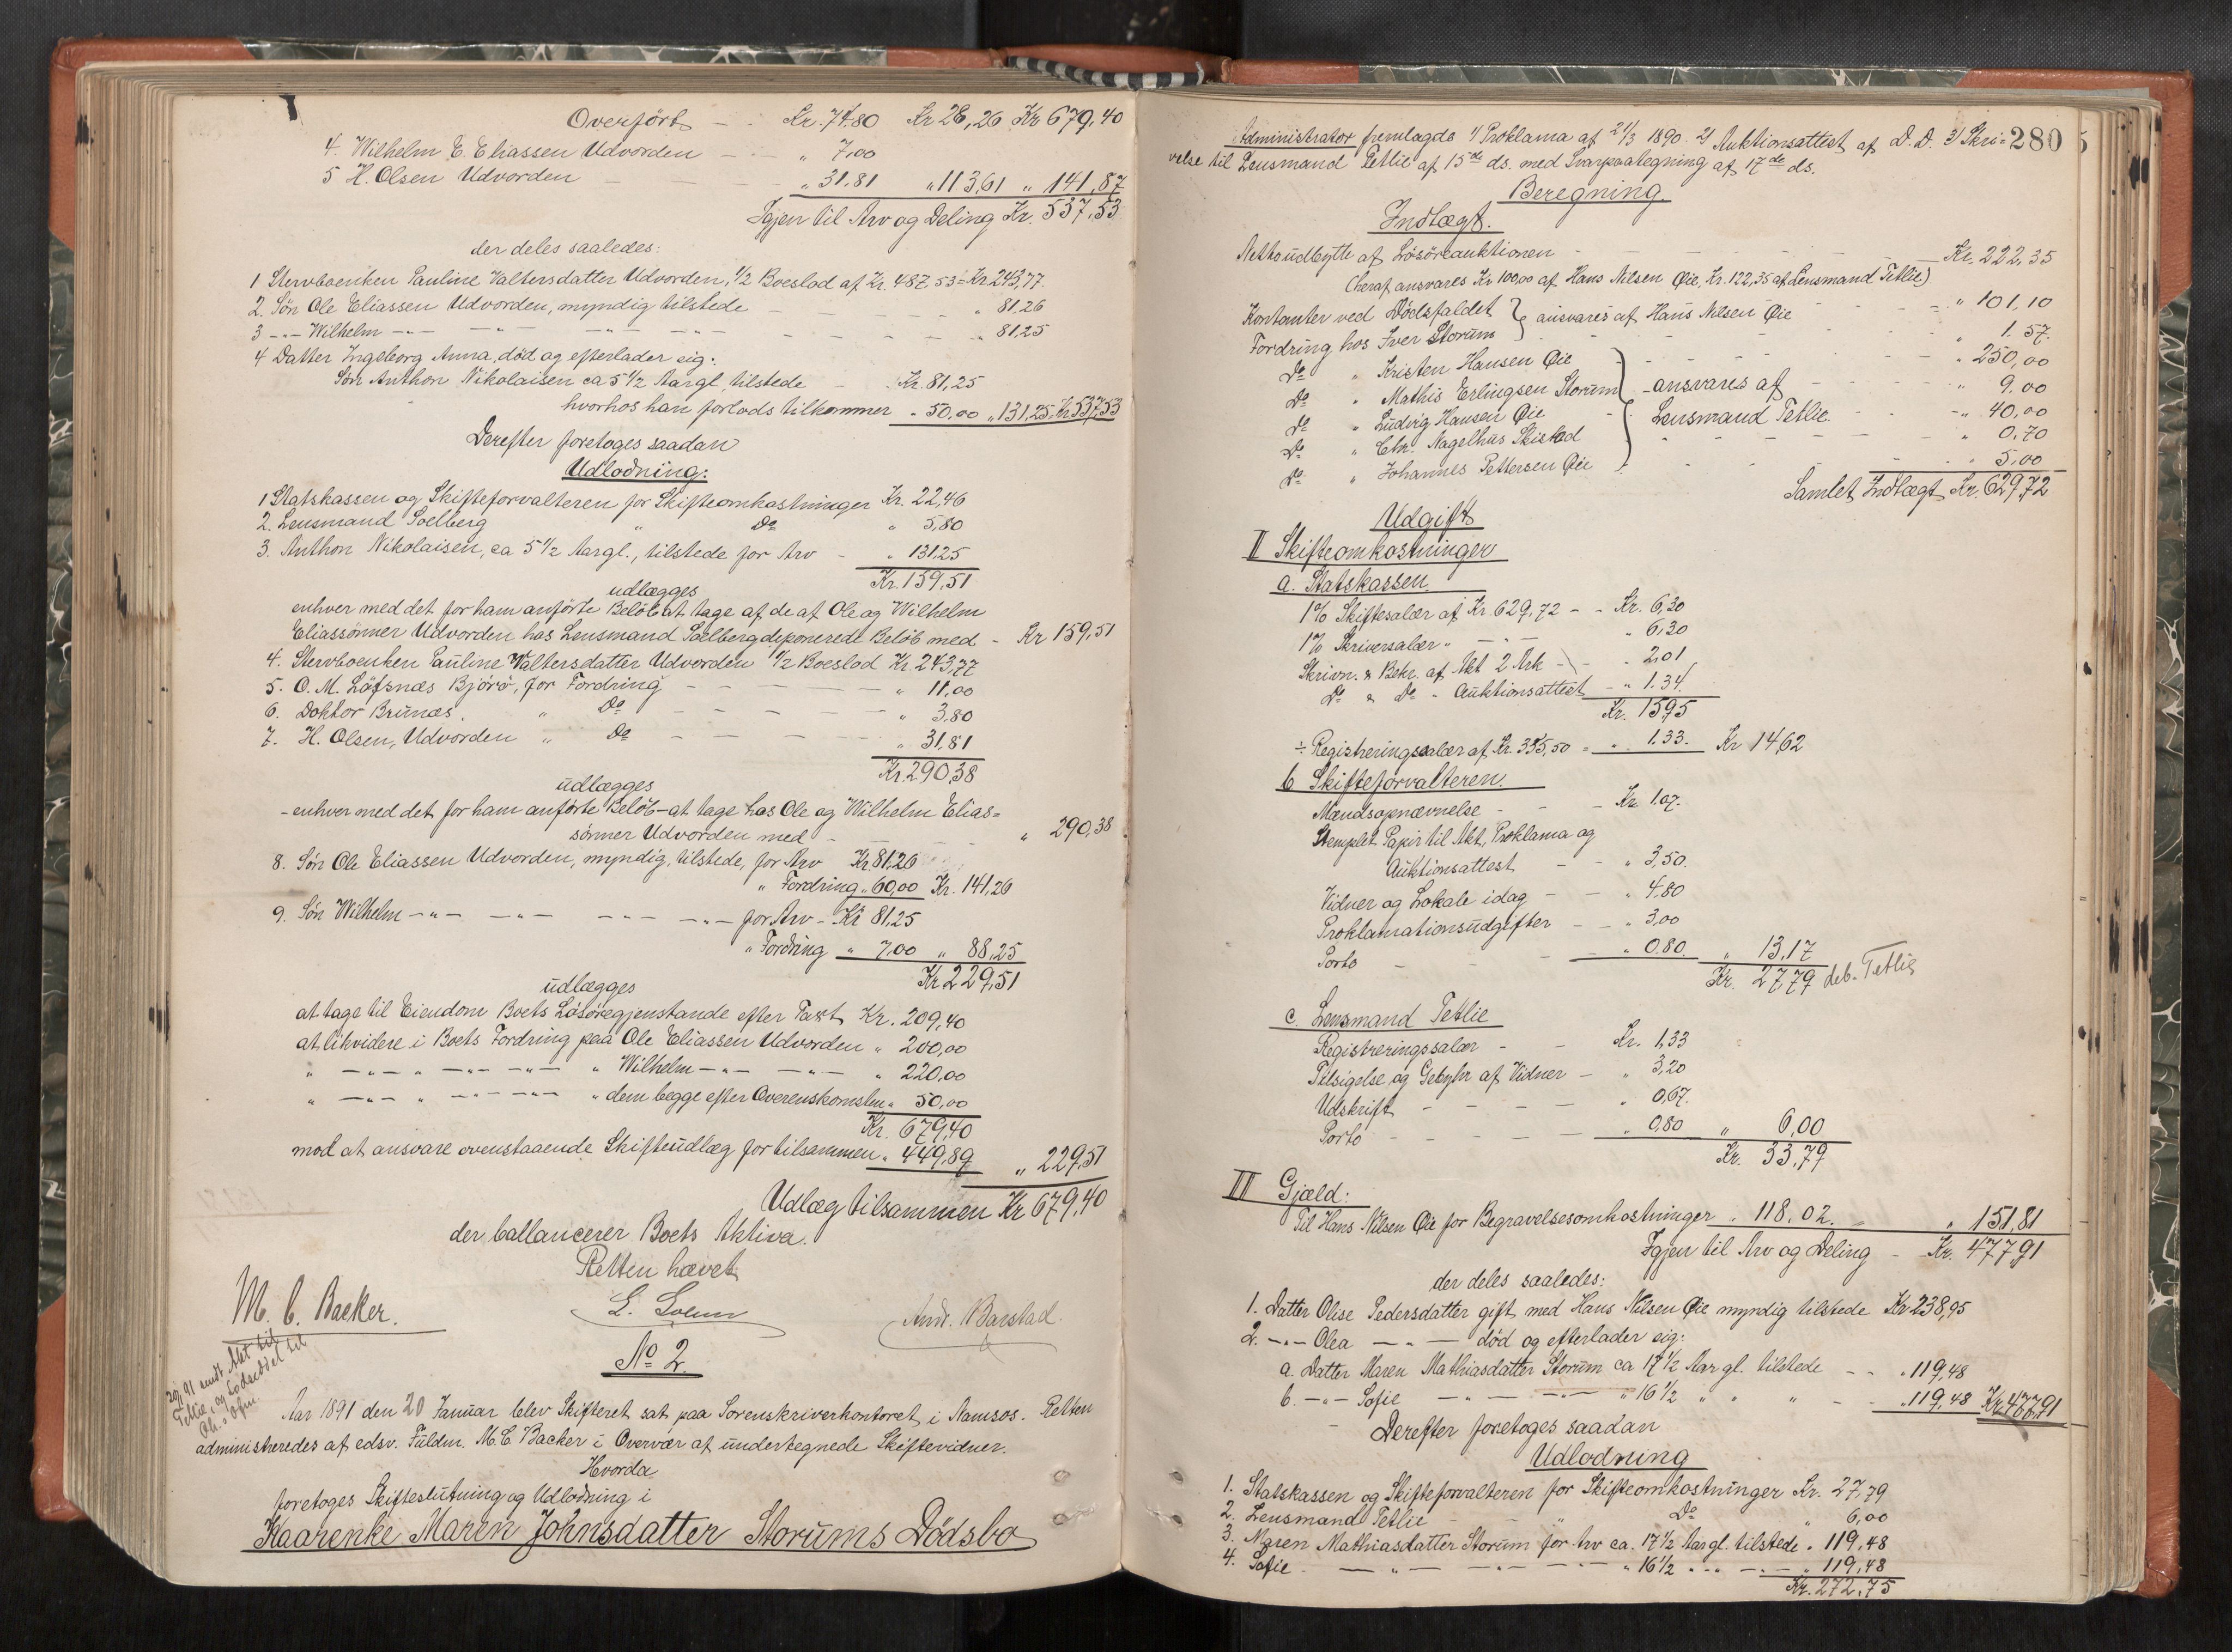 Overført - - Kr. 74.80 Kr 28,26 Kr 679,40
4. Wilhelm E. Eliassen Udvorden - - " 7,00
5 H. Olsen Udvorden - - " 31,81 " 113,61 " 141,87
Igjen til Arv og Deling Kr. 537,53
der deles saaledes:
1 Stervboenken Pauline Valtersdatter Udvorden, 1/2 Boeslod af Kr. 487,53 = Kr 243,77
2. Søn Ole Eliassen Udvorden, myndig tilstede - - - " 81,26
3 -"- Wilhelm -"- -"- -"- -"- - - - " 81,25
4 Datter Ingeborg Anna, død og efterlader sig:
Søn Anthon Nikolaisen ca 5 1/2 Aar gl. tilstede - Kr. 81,25
hvorhos han forlods tilkommer " 50,00 " 131,25. Kr 537,53
Derefter foretoges saadan
Udlodning:
1 Statskassen og Skifteforvalteren for Skifteomkostninger Kr. 22,46
2. Lensmand Soelberg " Do " 5,80
3. Anthon Nikolaisen, ca 5 1/2 Aar gl., tilstede for Arv - " 131,25
Kr. 159,51
udlægges
enhver med det for ham anførte Beløb at tage af de af Ole og Wilhelm
Eliassønner Udvorden hos Lensmand Soelberg deponerede Beløb med - Kr 159,51
4. Stervboenken Pauline Waltersdatter Udvorden 1/2 Boeslod Kr. 243,77
5. O. M. Løfsnæs Bjørø, for Fordring - - - " 11,00
6. Doktor Brunæs. " Do - - - " 3,80
7. H. Olsen, Udvorden " Do - - - " 31,81
Kr. 290,38
udlægges
- enhver med det for ham anførte Beløb - at tage hos Ole og Wilhelm Elias=
sønner Udvorden med - - " 290,38
8. Søn Ole Eliassen Udvorden, myndig, tilstede, for Arv Kr. 81,26
" Fordring " 60,00 Kr. 141,26
9. Søn Wilhelm -"- -"- -"- -"- for Arv - Kr 81,25
" Fordring " 7,00 " 88,25
Kr 229,51
udlægges
at tage til Eiendom Boets Løsøregjenstande efter Taxt Kr. 209,40
at likvidere i Boets Fordring paa Ole Eliassen Udvorden " 200,00
" -"- " -"- -"- " Wilhelm -"- -"- " 220,00
" -"- " -"- -"- " dem begge efter Overenskomsten " 50,00
Kr. 679,40
mod at ansvare ovenstaaende Skifteudlæg for tilsammen " 449,89 " 229,51
Udlæg tilsammen Kr 679,40
der ballancerer Boets Aktiva.
Retten hævet
M. C. Backer. Andr. Barstad
No 2.
Aar 1891 den 20 Januar blev Skifteret sat paa Sorenskriverkontoret i Namsos. Retten
administreredes af edsv. Fuldm. M. C. Backer i Overvær af undertegnede Skiftevidner.
Hvorda
foretoges Skifteslutning og Udlodning i
Kaarenke Maren Johnsdatter Storums Dødsbo
280
Administrator fremlagde 1/ Proklama af 21/3 1890. 2/ Auktionsattest af D. D. 3/ Skri=
velse til Lensmand Tetlie af 15de ds. med Svarpaategning af 17de ds.
Beregning.
Indtægt.
Nettoudbytte af Løsøreauktionen - - - Kr. 222,35
(heraf ansvares Kr 100,00 af Hans Nilsen Øie, Kr. 122,35 af Lensmand Tetlie)
Kontanter ved Dødsfaldet } ansvares af Hans Nilsen Øie - " 101,10
Fordring hos Iver Storum - - " 1.57.
Do " Kristen Hansen Øie - - " 250,00
Do " Mathis Erlingsen Storum - ansvares af - - " 9.00
Do " Ludvig Hansen Øie Lensmand Tetlie. - - " 40,00
Do " Chr. Nagelhus Skistad - - " 0.70
Do " Johannes Pettersen Øie - - " 5,00
Samlet Indtægt Kr. 629,72
Udgift
II Skifteomkostninger
a. Statskassen.
1% Skiftesalær af Kr 629,72 - - Kr. 6,30
1% Skriversalær " - - " 6,30
Skrivn. & Bekr. af Akt 2 Ark - - " 2,01
Do & Do " Auktionsattest - " 1.34.
Kr. 15,95
÷ Registreringssalær af Kr. 335,50 = " 1.33. Kr 14,62
b Skifteforvalteren.
Mændsopnævnelse - - Kr. 1.07.
Stemplet Papir til Akt, Proklama og
Auktionsattest - - " 3,50.
Vidner og Lokale idag - - " 4,80
Proklamationsudgifter - - " 3,00
Porto - - " 0,80. " 13,17
Kr. 27,79 deb. Tetlie
c. Lensmand Tetlie
Registreringssalær - - Kr. 1,33
Tilsigelse og Gebyhr af Vidner - " 3,20
Udskrift - - - " 0,67.
Porto - - - " 0,80 " 6,00
Kr. 33,79
III Gjæld:
Til Hans Nilsen Øie for Begravelsesomkostninger " 118,02. " 151,81
Igjen til Arv og Deling - Kr. 477,91
der deles saaledes:
1. Datter Olise Pedersdatter gift med Hans Nilsen Øie myndig tilstede Kr 238,95
2. -"- Olea -"- død og efterlader sig:
a. Datter Maren Mathiasdatter Storum ca 17 1/2 Aar gl. tilstede - - " 119,48
b. -"- Sofie -"- -"- " 16 1/2 " " " - - " 119,48 Kr 477,91
Derefter foretoges saadan
Udlodning
1. Statskassen og Skifteforvalteren for Skifteomkostninger Kr. 27,79
2. Lensmand Tetlie - " Do " 6,00
3. Maren Mathiasdatter Storum for Arv ca. 17 1/2 Aar gl. tilstede " 119,48
4. Sofie - -"- -"- " 16 1/2 " " -"- " 119,48
Kr. 272,75